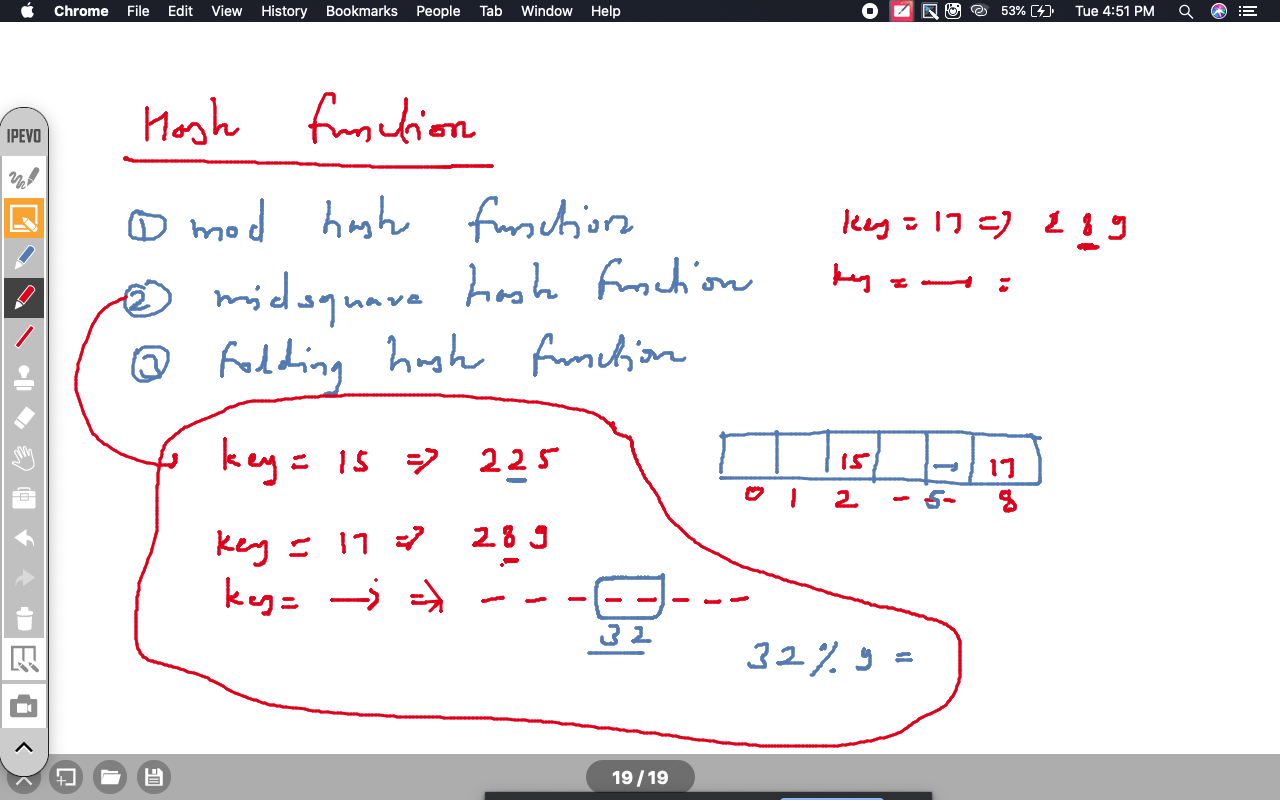 Chrome File Edit View History Bookmarks People Tab Window Help 53% Tue 4:51 PM
IPEVO
Hash function
① mod hash function
key = 17 => 289
② midsquare hash function
key = → =
③ folding hash function
key = 15 => 225
15 → 17
0 1 2 - 5 - 8
key = 17 => 289
key = → => - - - - - - - -
32
32 % 9 =
19/19